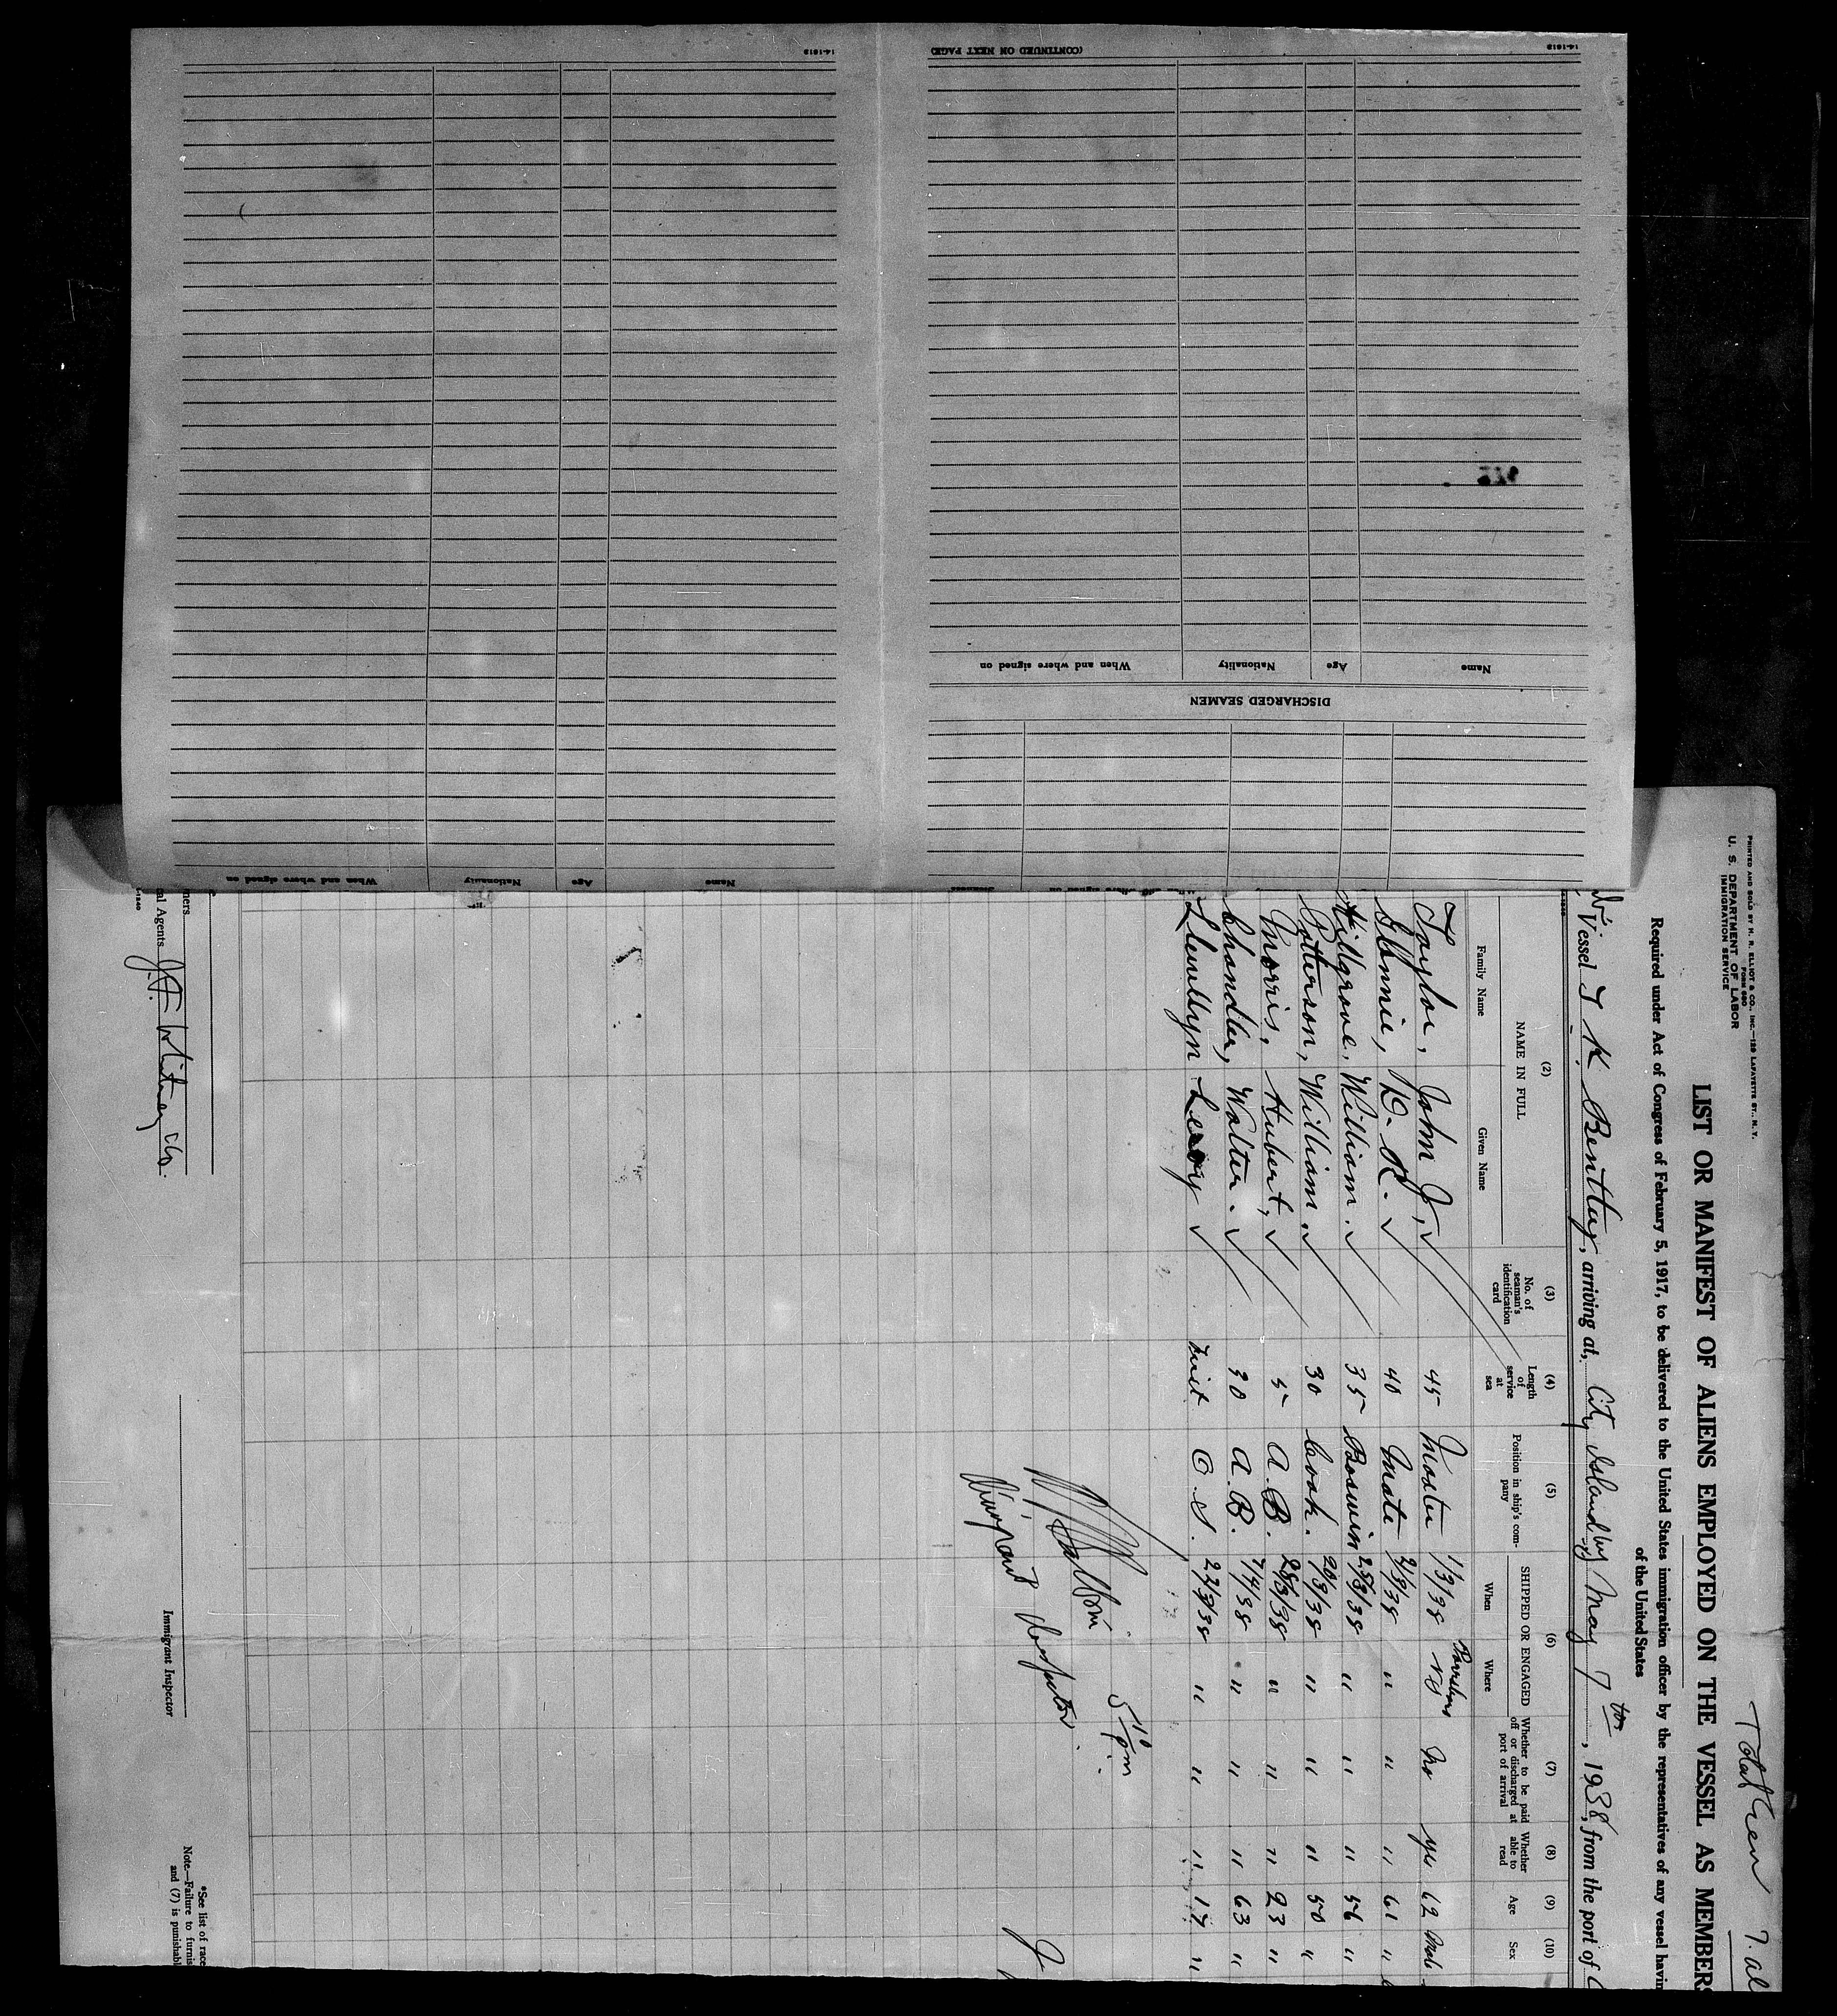 14-1613
(CONTINUED ON NEXT PAGE)
14-1613
When and where signed on
Nationality
Age
Name
DISCHARGED SEAMEN
When and where signed on
Nationality
Age
Name
PRINTED AND SOLD BY H. R. ELLIOT & CO., INC.—129 LAFAYETTE ST., N. Y.
FORM 680
U. S. DEPARTMENT OF LABOR
IMMIGRATION SERVICE
Total Crew 7. al
LIST OR MANIFEST OF ALIENS EMPLOYED ON THE VESSEL AS MEMBERS
Required under Act of Congress of February 5, 1917, to be delivered to the United States immigration officer by the representatives of any vessel havin
of the United States
Vessel T K Bentley, arriving at, City Island by May 7th, 1938, from the port of
(2) (3) (4) (5) (6) (7) (8) (9) (10)
NAME IN FULL
Family Name Given Name
No. of seaman's identification card
Length of service at sea
Position in ship's company
SHIPPED OR ENGAGED
When Where
Whether to be paid off or discharged at port of arrival
Whether able to read
Age
Sex
Taylor, John J. ✓ 45 Master 1/3/38 Parrsboro NS no yes 62 Male
Glennie, D. R. ✓ 40 Mate 2/3/38 " " " 61 "
Hillgrove, William. ✓ 35 Boswin 25/3/38 " " " 56 "
Patterson, William. ✓ 30 Cook. 20/3/38 " " " 50 "
Morris, Hubert, ✓ 5 A.B. 28/3/38 " " " 23 "
Chandler, Walter. ✓ 30 A.B. 7/4/38 " " " 63 "
Llewellyn Leroy ✓ First O.S. 23/3/38 " " " 17 "
5 10 pm
Immigrant Inspector.
ners
al Agents J.F. Whitney Co.
Immigrant Inspector
*See list of race
Note.—Failure to furnis
and (7) is punishabl